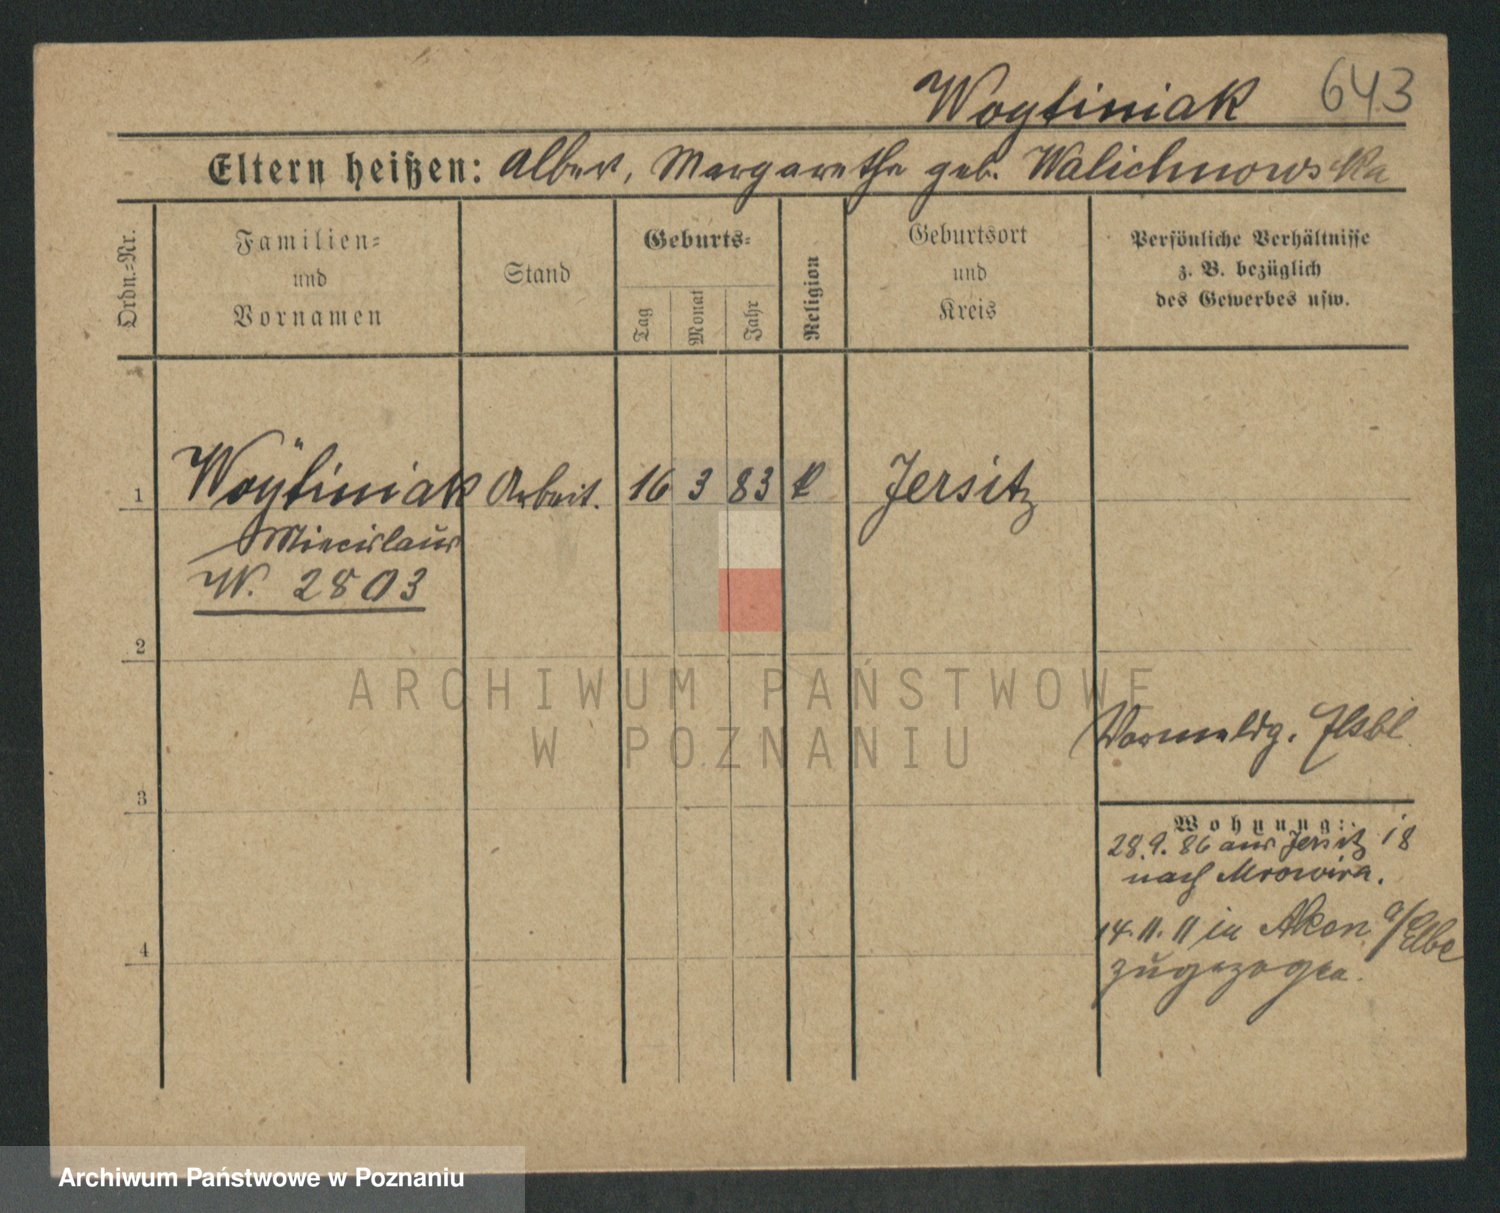 Woytiniak 643
Eltern heißen: Albert, Margarethe geb. Walichnowska
Ordn.=Nr.
Familien=
und
Vornamen
Stand
Geburts=
Tag
Monat
Jahr
Religion
Geburtsort
und
Kreis
Persönliche Verhältnisse
z. B. bezüglich
des Gewerbes usw.
1 Woÿtiniak Arbeit. 16 3 83 k Jersitz
Miecislaus
W. 2803
2
ARCHIWUM PAŃSTWOWE
W POZNANIU
Vormeldg.
3
Wohnung:
28.9.86 aus Jersitz 18
nach
14.11.11 in Aken a/Elbe
zugezogen.
4
Archiwum Państwowe w Poznaniu